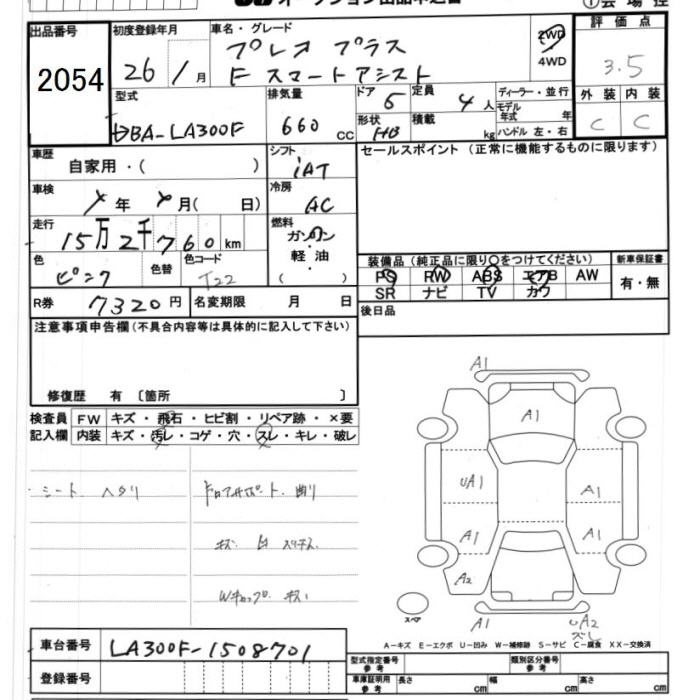 オークション出品申込書
①会場控
出品番号 2054
初度登録年月 26年 1月
車名・グレード
プレオ プラス
F スマートアシスト
2WD
4WD
評価点 3.5
外装 C 内装 C
型式 DBA-LA300F
排気量 660 CC
ドア 5 定員 4人
形状 HB 積載 kg
ディーラー・並行
モデル年式 年
ハンドル 左・右
車歴 自家用・( )
シフト iAT
セールスポイント (正常に機能するものに限ります)
車検 年 月( 日)
冷房 AC
走行 15万2千760km
燃料 ガソリン・軽油・( )
色 ピンク 色替 色コード T22
装備品 (純正品に限り○をつけてください)
新車保証書 有・無
PS PW ABS エアB AW
SR ナビ TV カワ
R券 7320円 名変期限 月 日
後日品
注意事項申告欄(不具合内容等は具体的に記入して下さい)
修復歴 有 〔箇所 〕
検査員記入欄
FW キズ・飛石・ヒビ割・リペア跡・×要
内装 キズ・汚レ・コゲ・穴・スレ・キレ・破レ
シート ヘタリ
キズ
Wキャップ キズ
A1
A1
UA1
A1
A1
A1
A2
A1
UA2
ズレ
スペア
A-キズ E-エクボ U-凹み W-補修跡 S-サビ C-腐食 XX-交換済
車台番号 LA300F-1508701
登録番号
型式指定番号 参考
類別区分番号 参考
車庫証明用 参考 長さ cm 幅 cm 高さ cm